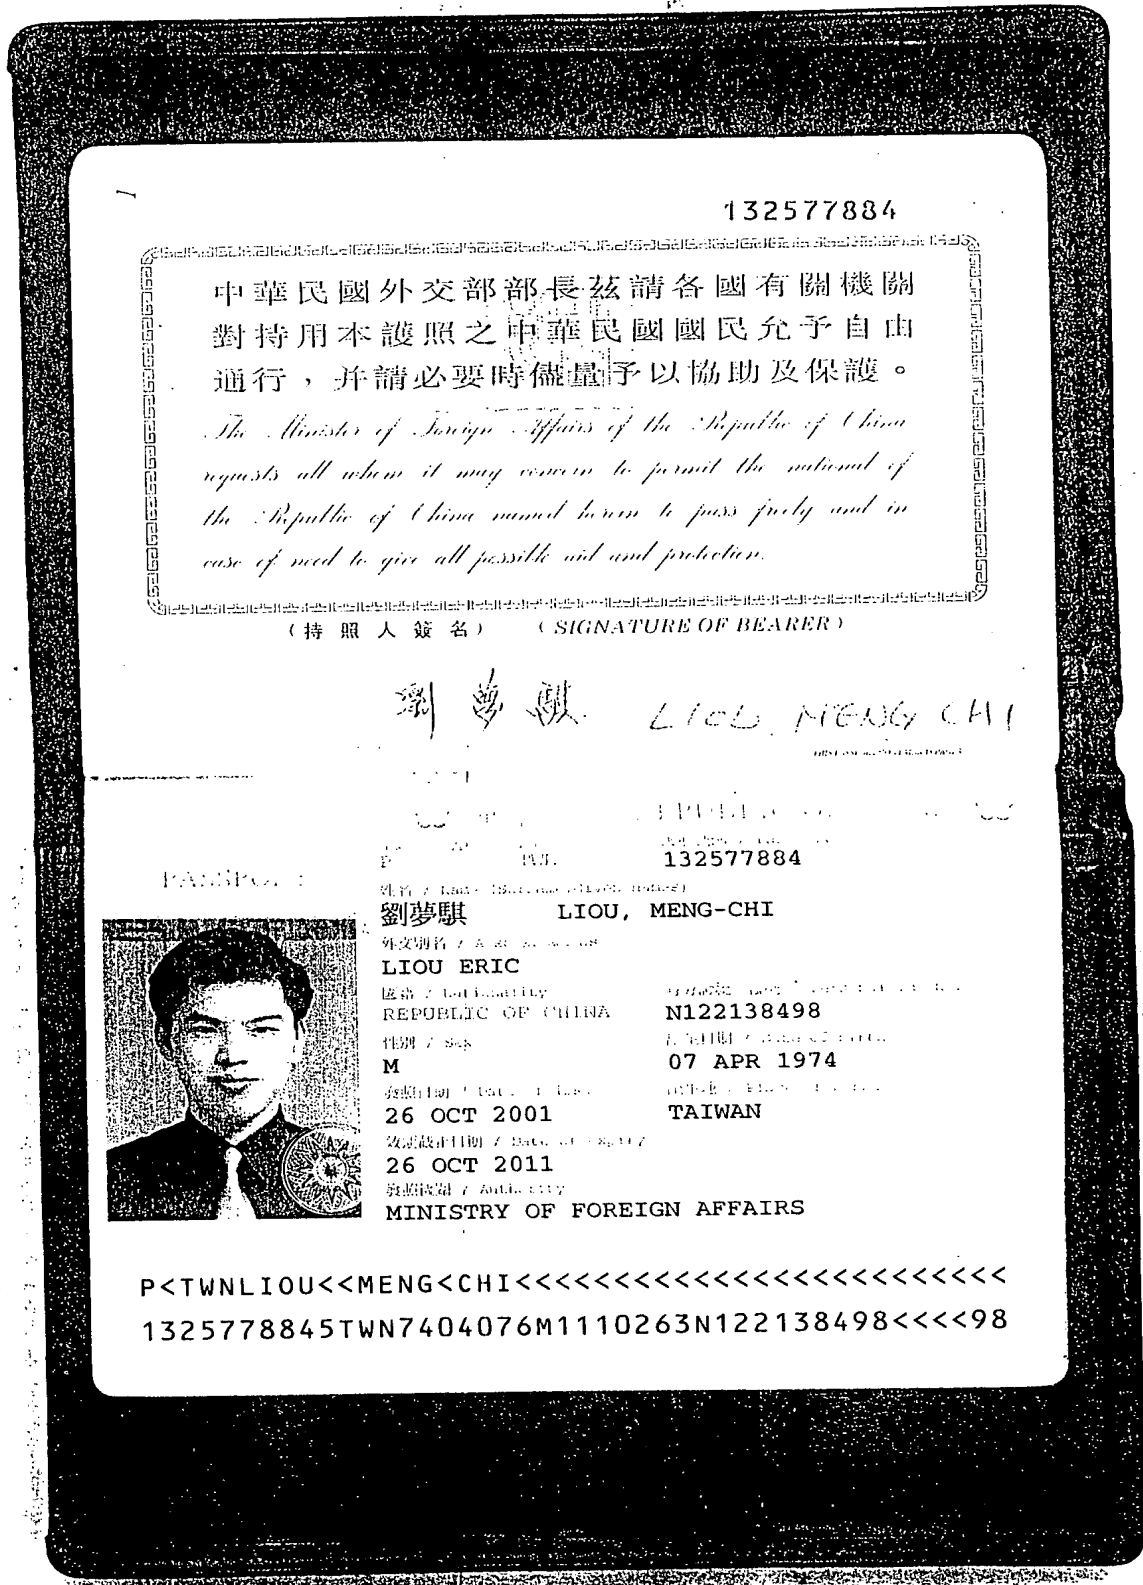 132577884
中華民國外交部部長茲請各國有關機關
對持用本護照之中華民國國民允予自由
通行，并請必要時儘量予以協助及保護。
The Minister of Foreign Affairs of the Republic of China
requests all whom it may concern to permit the national of
the Republic of China named herein to pass freely and in
case of need to give all possible aid and protection.
(持照人簽名) (SIGNATURE OF BEARER)
劉夢騏 LIOU MENG CHI
PASSPORT
132577884
姓名 / Name
劉夢騏 LIOU, MENG-CHI
外文別名 /
LIOU ERIC
國籍 / Nationality
REPUBLIC OF CHINA N122138498
性別 / Sex
M 07 APR 1974
26 OCT 2001 TAIWAN
Date of expiry
26 OCT 2011
Authority
MINISTRY OF FOREIGN AFFAIRS
P<TWNLIOU<<MENG<CHI<<<<<<<<<<<<<<<<<<<<<<<<<
1325778845TWN7404076M1110263N122138498<<<<98